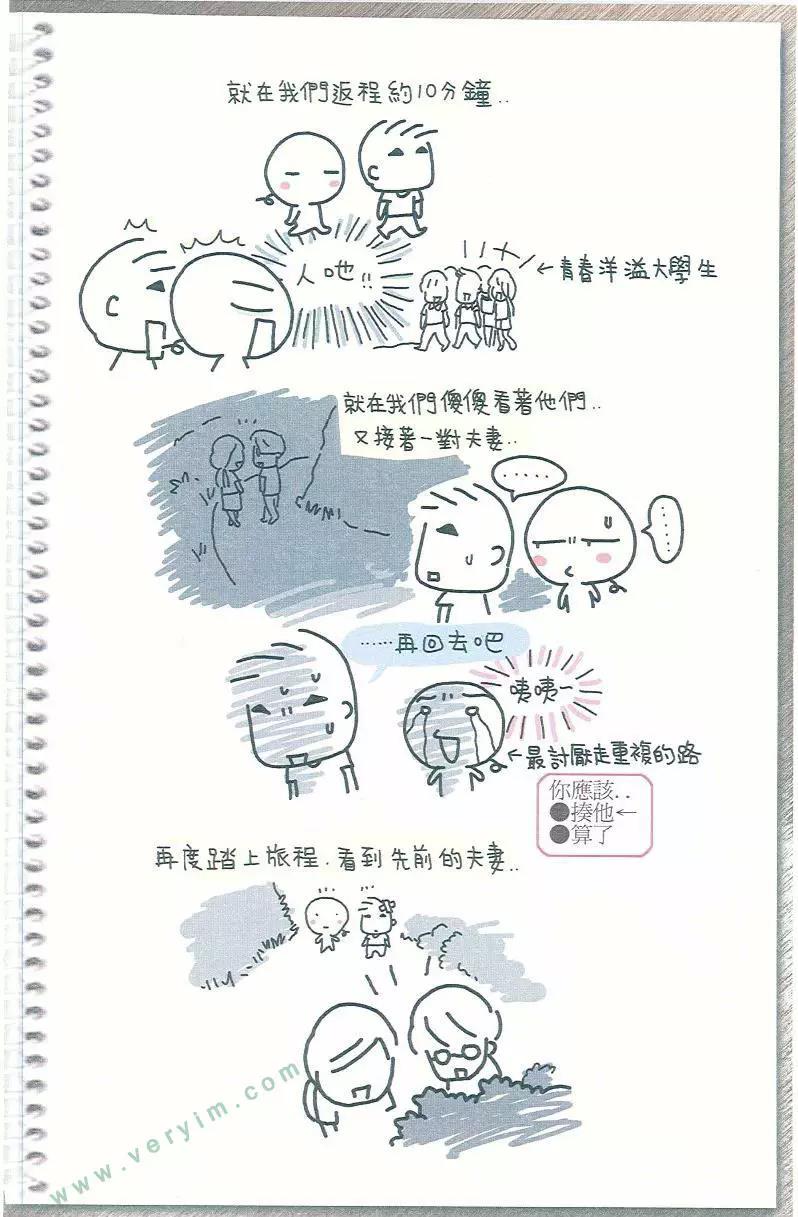 就在我們返程約10分鐘..
人吔!!
←青春洋溢大學生
就在我們傻傻看著他們..
又接著一對夫妻..
.....
....
......再回去吧
咦咦~
←最討厭走重複的路
你應該..
●揍他←
●算了
再度踏上旅程.看到先前的夫妻..
www.veryim.com